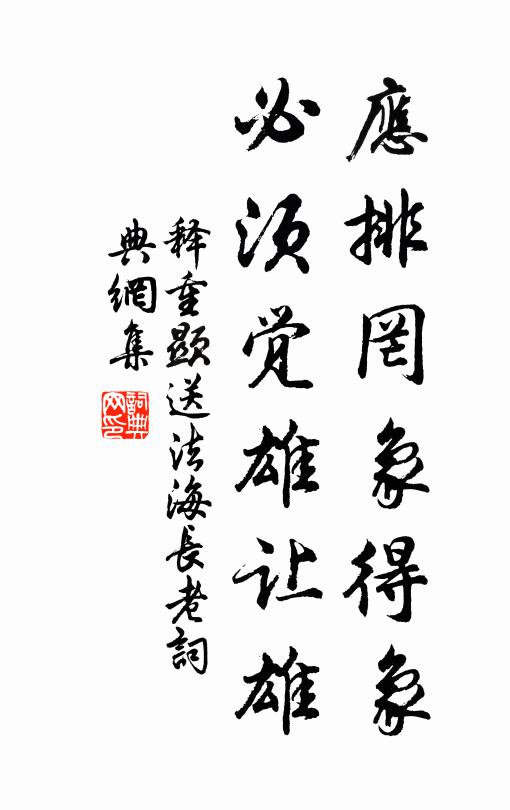 應排罔象得象
必须觉雄让雄
释重顯送法海長老詞
典網集
詞典網印